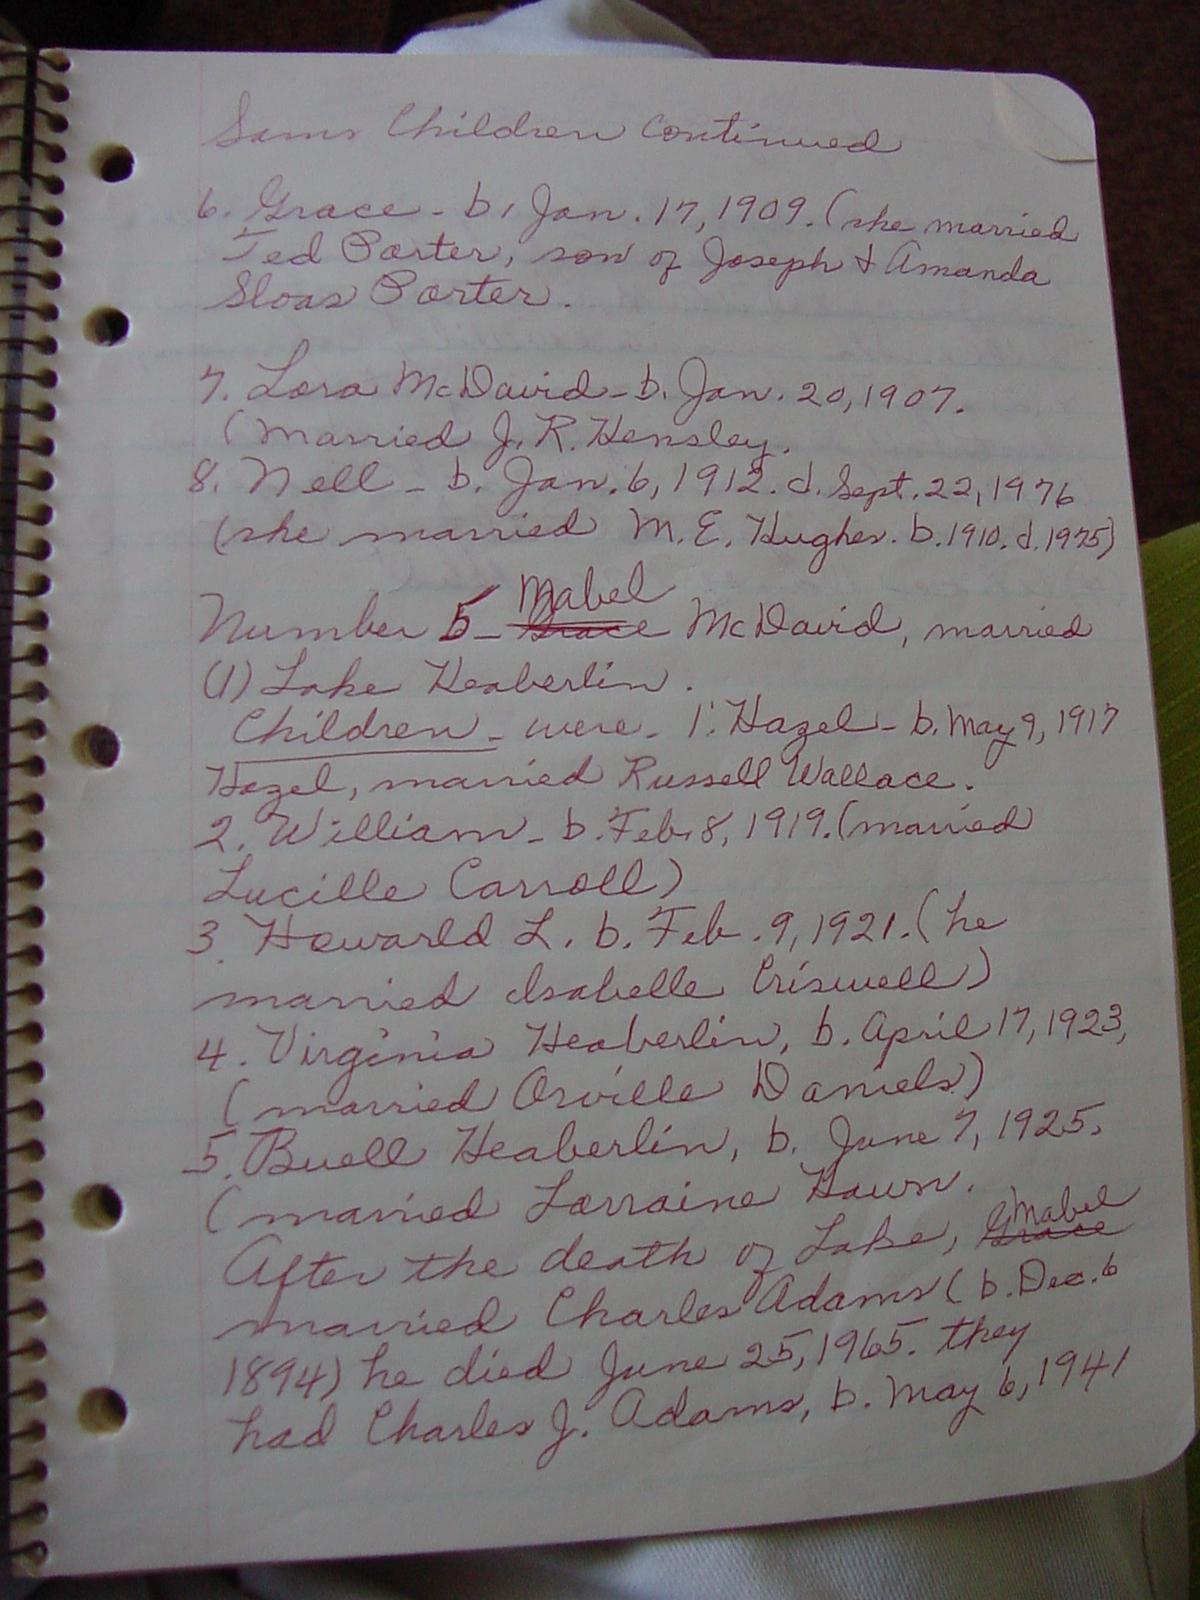 Sams Children Continued
6. Grace - b. Jan. 17, 1909. (she married
Ted Porter, son of Joseph & Amanda
Sloas Porter.
7. Lora McDavid - b. Jan. 20, 1907.
(married J. R. Hensley.
8. Nell - b. Jan. 6, 1912. d. Sept. 22, 1976
(she married M. E. Hughes. b. 1910. d. 1975)
Mabel
Number 5 - Grace McDavid, married
(1) Lake Heaberlin.
Children - were - 1. Hazel - b. May 9, 1917
Hazel, married Russell Wallace.
2. William - b. Feb. 8, 1919. (married
Lucille Carroll)
3. Howarld L. b. Feb. 9, 1921. (he
married Isabelle Criswell)
4. Virginia Heaberlin, b. April 17, 1923,
(married Orville Daniels)
5. Buell Heaberlin, b. June 7, 1925.
(married Lorraine Hawn.
Mabel
After the death of Lake, Grace
married Charles Adams (b. Dec. 6
1894) he died June 25, 1965. they
had Charles J. Adams, b. May 6, 1941